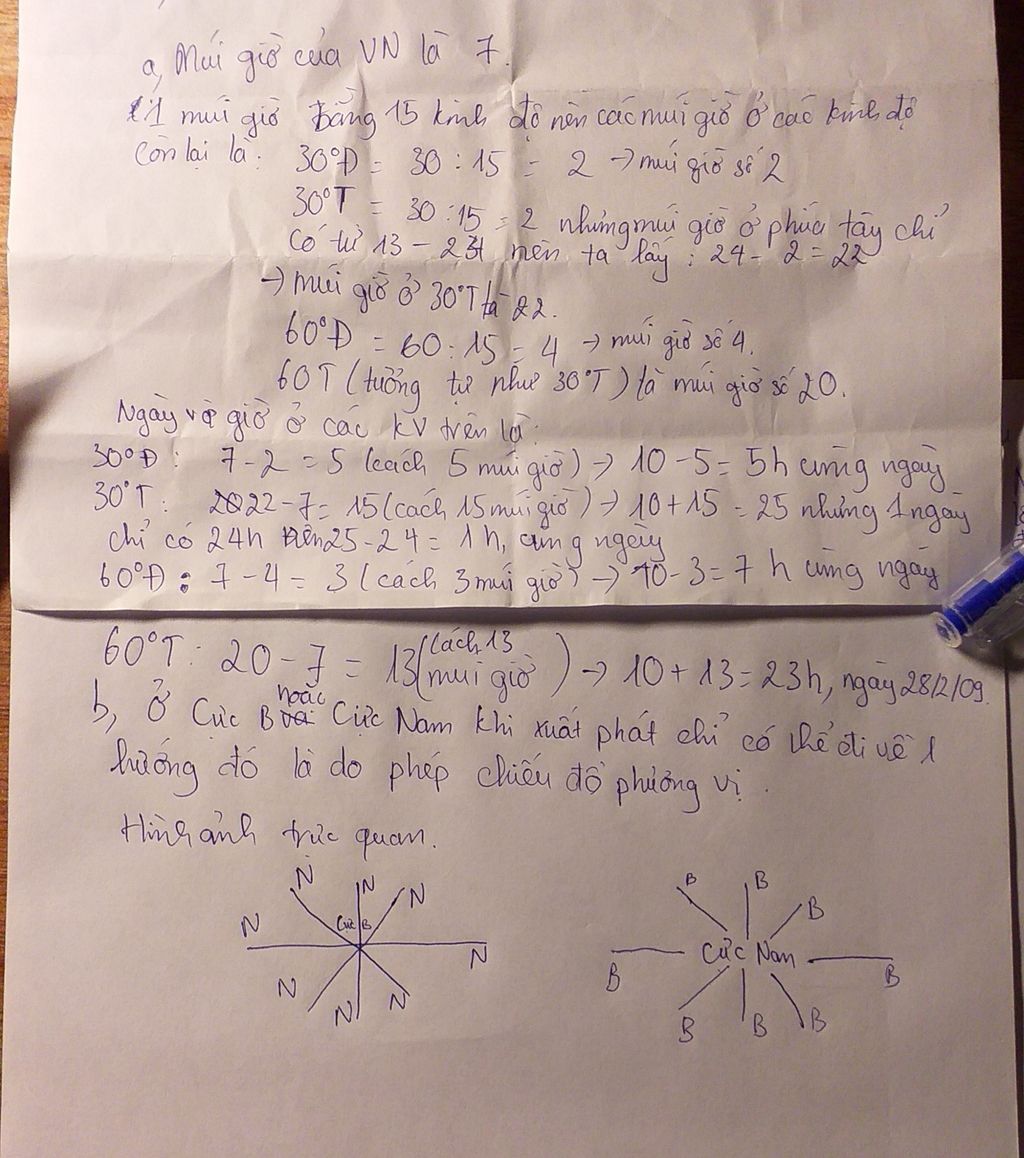 a, Múi giờ của VN là 7.
1 múi giờ bằng 15 kinh độ nên các múi giờ ở các kinh độ
còn lại là: 30°Đ = 30 : 15 = 2 → múi giờ số 2
30°T = 30 : 15 = 2 nhưng múi giờ ở phía tây chỉ
có từ 13 - 24 nên ta lấy : 24 - 2 = 22
→ múi giờ ở 30°T là 22.
60°Đ = 60 : 15 = 4 → múi giờ số 4.
60T (tưởng tự như 30°T) là múi giờ số 20.
Ngày và giờ ở các KV trên là:
30°Đ : 7 - 2 = 5 (cách 5 múi giờ) → 10 - 5 = 5h cùng ngày
30°T : 22 - 7 = 15 (cách 15 múi giờ) → 10 + 15 = 25 nhưng 1 ngày
chỉ có 24h nên 25 - 24 = 1h, cùng ngày
60°Đ : 7 - 4 = 3 (cách 3 múi giờ) → 10 - 3 = 7 h cùng ngày
60°T : 20 - 7 = 13 (cách 13 múi giờ) → 10 + 13 = 23h, ngày 28/2/09.
b, Ở Cực B hoặc Cực Nam khi xuất phát chỉ có thể đi về 1
hướng đó là do phép chiếu đồ phương vị.
Hình ảnh trực quan.
N N N B B B
N Cực B N B Cực Nam B
N N N B B B